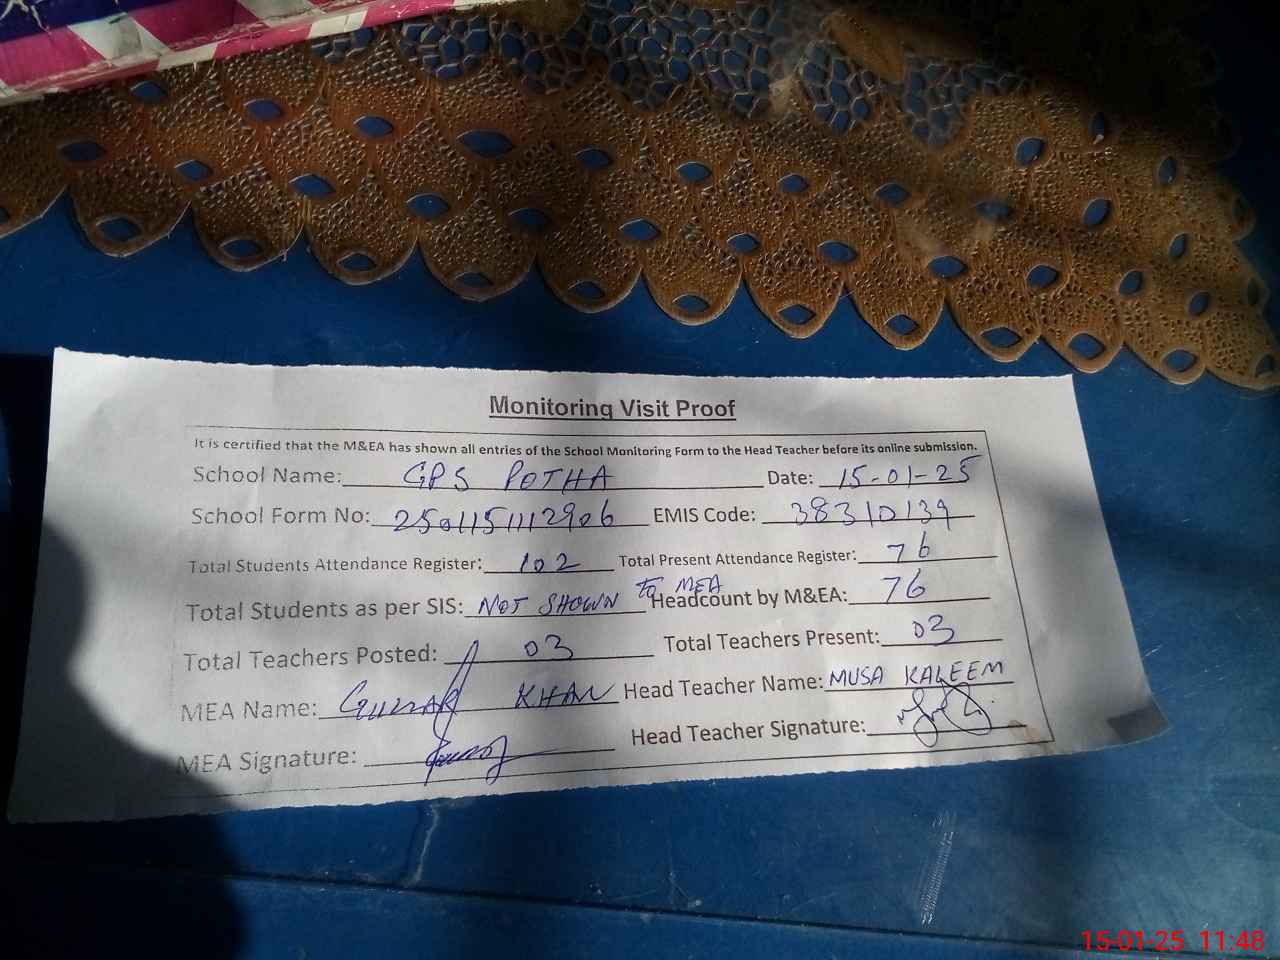 Monitoring Visit Proof
It is certified that the M&EA has shown all entries of the School Monitoring Form to the Head Teacher before its online submission.
School Name: GPS POTHA Date: 15-01-25
School Form No: 2501151112906 EMIS Code: 38310139
Total Students Attendance Register: 102 Total Present Attendance Register: 76
Total Students as per SIS: NOT SHOWN to MEA Headcount by M&EA: 76
Total Teachers Posted: 03 Total Teachers Present: 03
MEA Name: KHAN Head Teacher Name: MUSA KALEEM
MEA Signature: Head Teacher Signature:
15-01-25 11:48